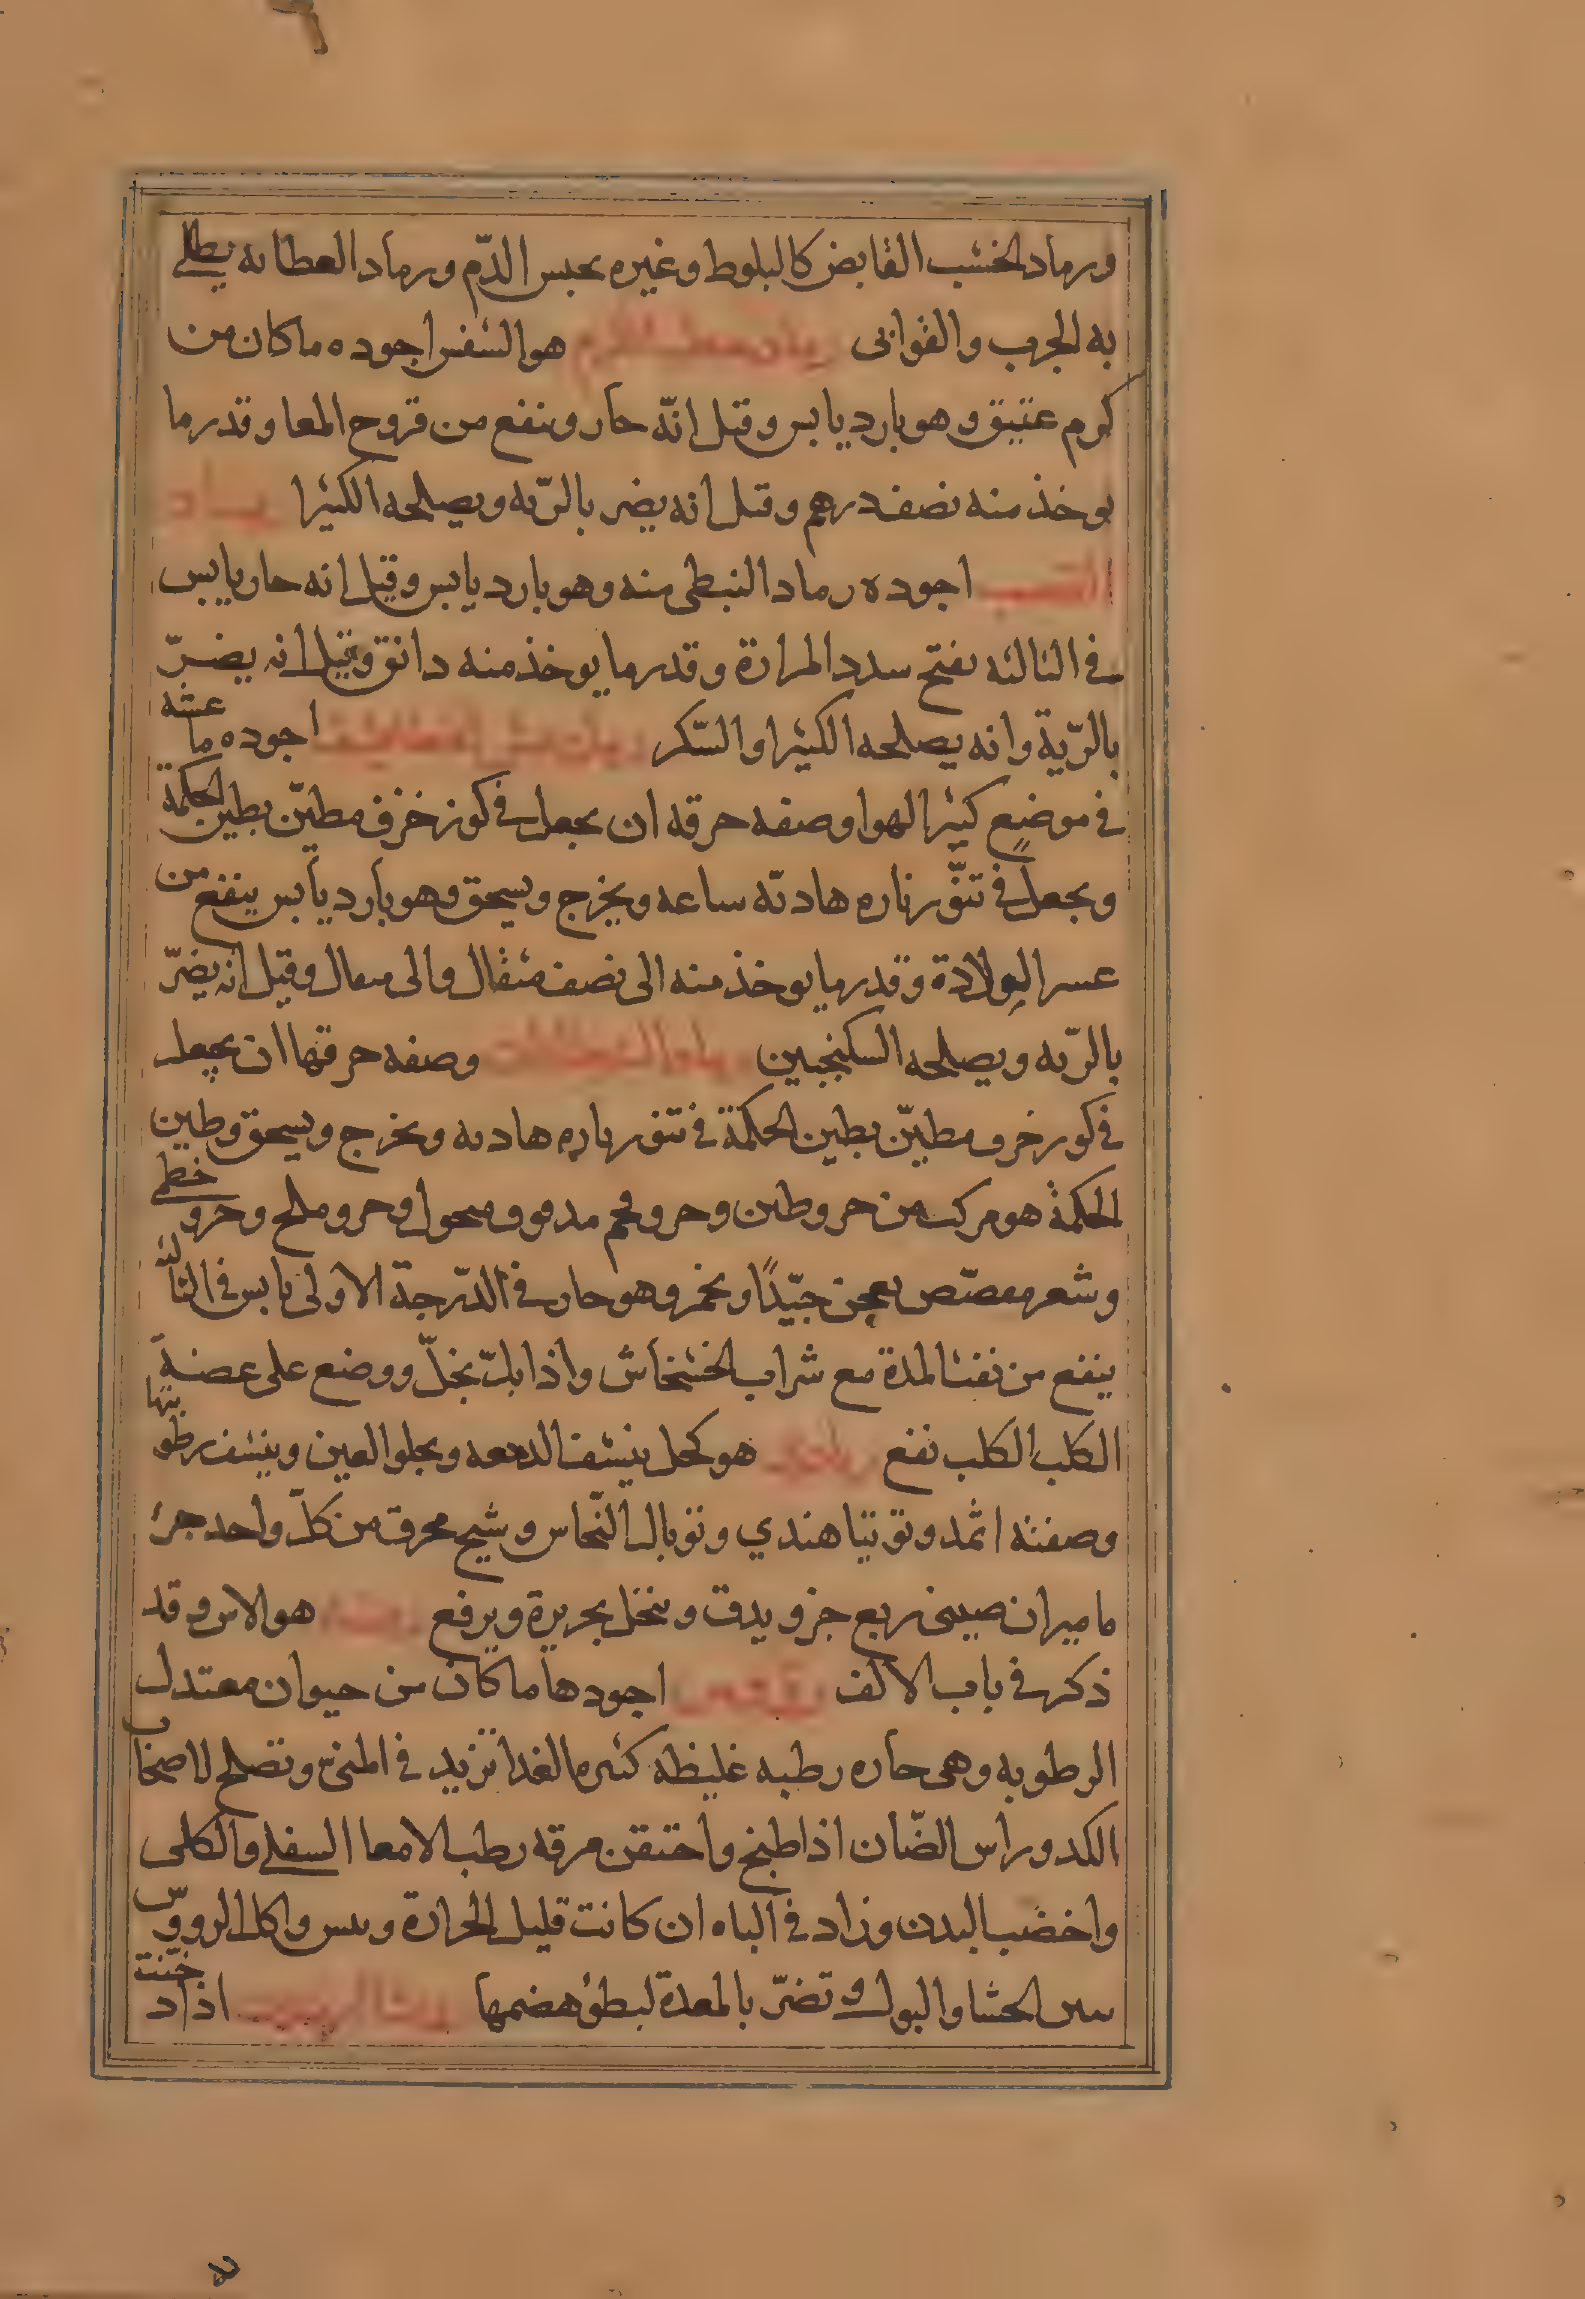 ورماد الخشب القابض كالبلوط وغيره يحبس الدّم ورماد العطايه يطلى
به الجرب والقوابى رماد حطب الكرم هو الشفس اجوده ما كان من
كرم عتيق وهو بارد يابس وقيل انّه حار وينفع من قروح المعا وقدر ما
يوخذ منه نصف درهم وقيل انه يضر بالرّيه ويصلحه الكثيرا رماد
القصب اجوده رماد النبطى منه وهو بارد يابس وقيل انه حار يابس
فى الثالثه يفتح سدد المرارة وقدر ما يوخذ منه دانق وقيل انه يضرّ
بالرّية وانه يصلحه الكثيرا والسّكر رماد عش الخطاطيف اجوده ما عشه
فى موضع كثير الهوا وصفه حرقه ان يجعل فى كوز خزف مطيّن بطين الحكمة
ويجعل فى تنّور ناره هاديّه ساعه ويخرج ويسحق وهو بارد يابس ينفع من
عسر الولادة وقدر ما يوخذ منه الى نصف مثقال والى مثقال وقيل انه يضرّ
بالرّيه ويصلحه السكنجبين وصفه حرقها ان يجعل
فى كوز خزف مطيّن بطين الحكمة فى تنور ناره هاديه ويخرج ويسحق وطين
الحكمة هو مركب من جزو طين وجزو فحم مدقوق منخول وجزو ملح وجزو خطمى
وشعر مقصّص يعجن جيّدًا ويخمر وهو حار فى الدّرجة الاولى يابس فى الثالثه
ينفع من نفث المدة مع شراب الخشخاش واذا بلّ بخلّ ووضع على عضة
الكلب الكلب نفع هو كحل ينشف الدمعه ويجلو العين وينشف رطوبتها
وصفته اثمد وتوتيا هندي وتوبال النّحاس وشيح محرق من كلّ واحد جزء
ماميران صينى ربع جزو يدق وينخل بحريرة ويرفع هو الاس وقد
ذكر فى باب الالف رووس اجودها ما كان من حيوان معتدل
الرطوبه وهى حاره رطبه غليظه كثيره الغذا تزيد فى المنىّ وتصلح لاصحاب
الكد وراس الضّان اذا طبخ واحتقن مرقه رطب الامعا السفلى والكلى
واخضب البدن وزاد فى الباه ان كانت قليل الحرارة ويبس واكل الرووس
الحشا والبول وتضرّ بالمعدة لبطؤ هضمها اذا دخّنت